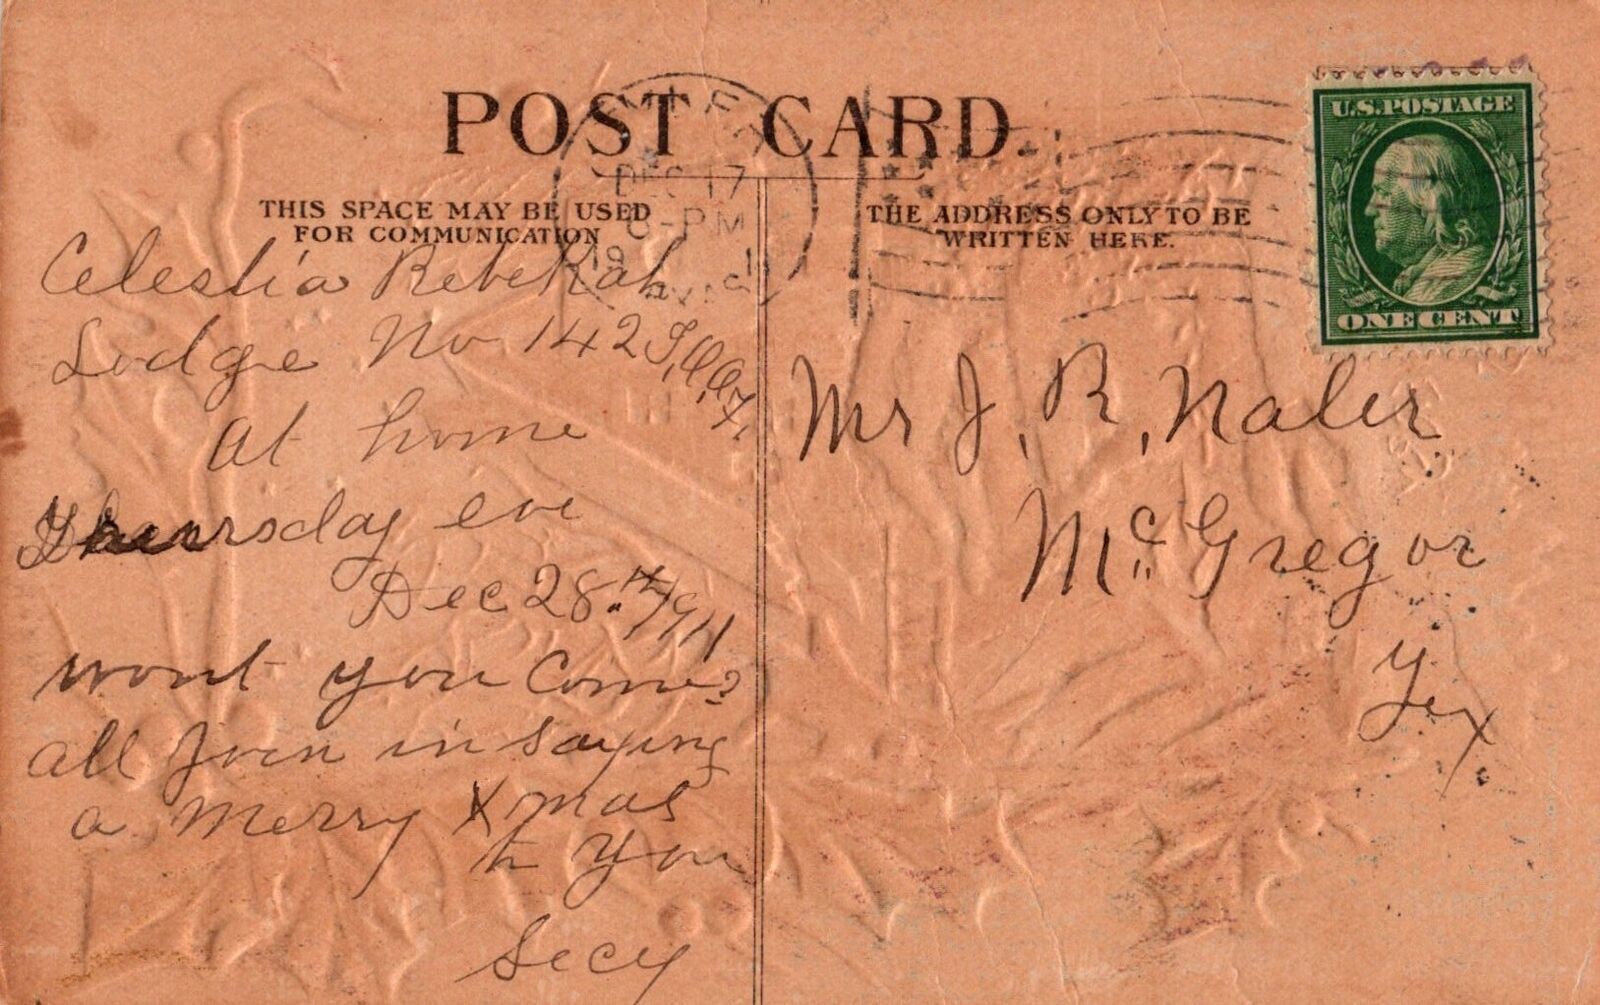 POST CARD.
THIS SPACE MAY BE USED
FOR COMMUNICATION
THE ADDRESS ONLY TO BE
WRITTEN HERE.
U.S. POSTAGE
ONE CENT
DEC 17
6-PM
Celestia Rebekah
Lodge No 142 I,O,O,F,
at home
Thursday eve
Dec 28.th/1911
wont you Come?
all Join in saying
a merry Xmas
to you
Secy
Mr J. R. Naler
McGregor
Tex